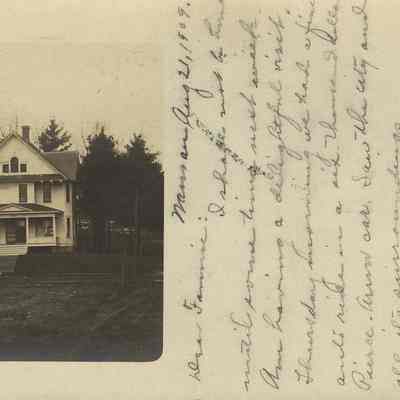 Wausau Aug 21, 1909.
Dear Fannie:
I shall not be home
until some time next week.
Am having a delightful visit.
Thursday morning we had a fine
auto ride in a
Pierce-Arrow car. Saw the city and
all its surroundings